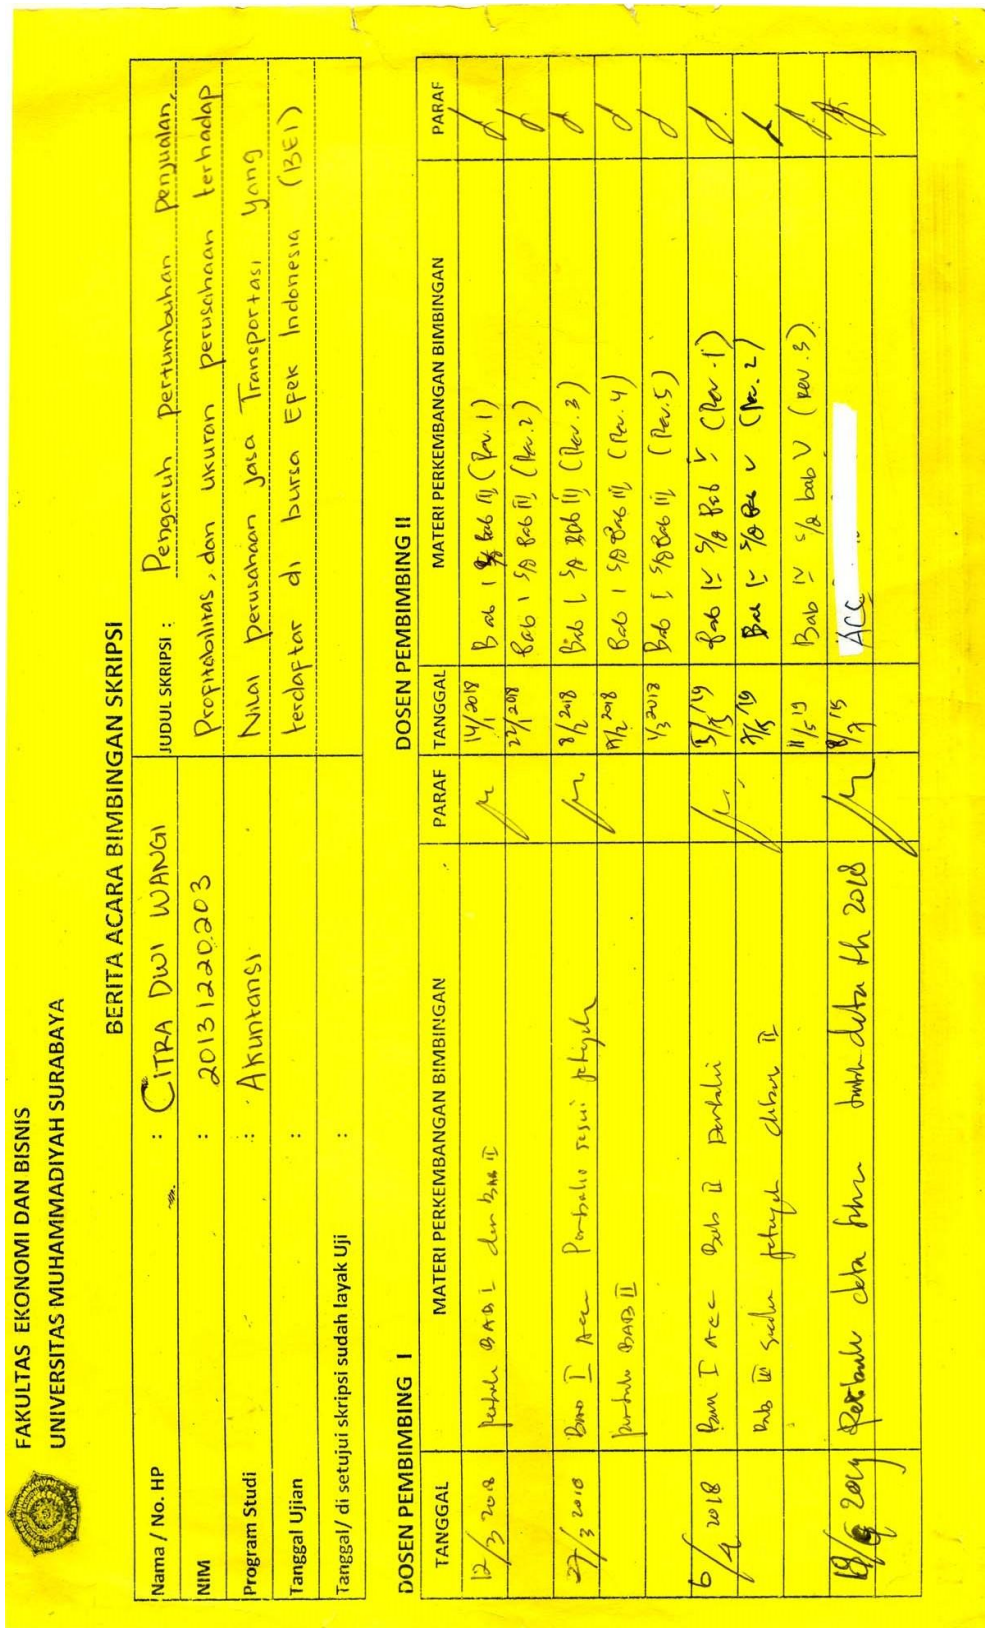 FAKULTAS EKONOMI DAN BISNIS
UNIVERSITAS MUHAMMADIYAH SURABAYA
BERITA ACARA BIMBINGAN SKRIPSI
Nama / No. HP : CITRA DWI WANGI
NIM : 20131220203
Program Studi : Akuntansi
Tanggal Ujian :
Tanggal/ di setujui skripsi sudah layak Uji :
JUDUL SKRIPSI : Pengaruh Pertumbuhan Penjualan,
Profitabilitas, dan ukuran perusahaan terhadap
Nilai perusahaan Jasa Transportasi yang
terdaptar di bursa Epek Indonesia (BEI)
DOSEN PEMBIMBING I
TANGGAL MATERI PERKEMBANGAN BIMBINGAN PARAF
12/3 2018 BAB I dan BAB II
27/3 2018 BAB I Acc
BAB II
6/4 2018 Bab I Acc Bab II
Bab III
2019 data data th 2018
DOSEN PEMBIMBING II
TANGGAL MATERI PERKEMBANGAN BIMBINGAN PARAF
14/1 2018 Bab I Bab III (Rev. 1)
22/1 2018 Bab I S/D Bab III (Rev. 2)
8/2 2018 Bab I S/D Bab III (Rev. 3)
2018 Bab I S/D Bab III (Rev. 4)
1/3 2018 Bab I S/D Bab III (Rev. 5)
Bab IV S/D Bab V (Rev. 1)
Bab IV S/D Bab V (Rev. 2)
11/5 19 Bab IV S/D bab V (Rev. 3)
ACC